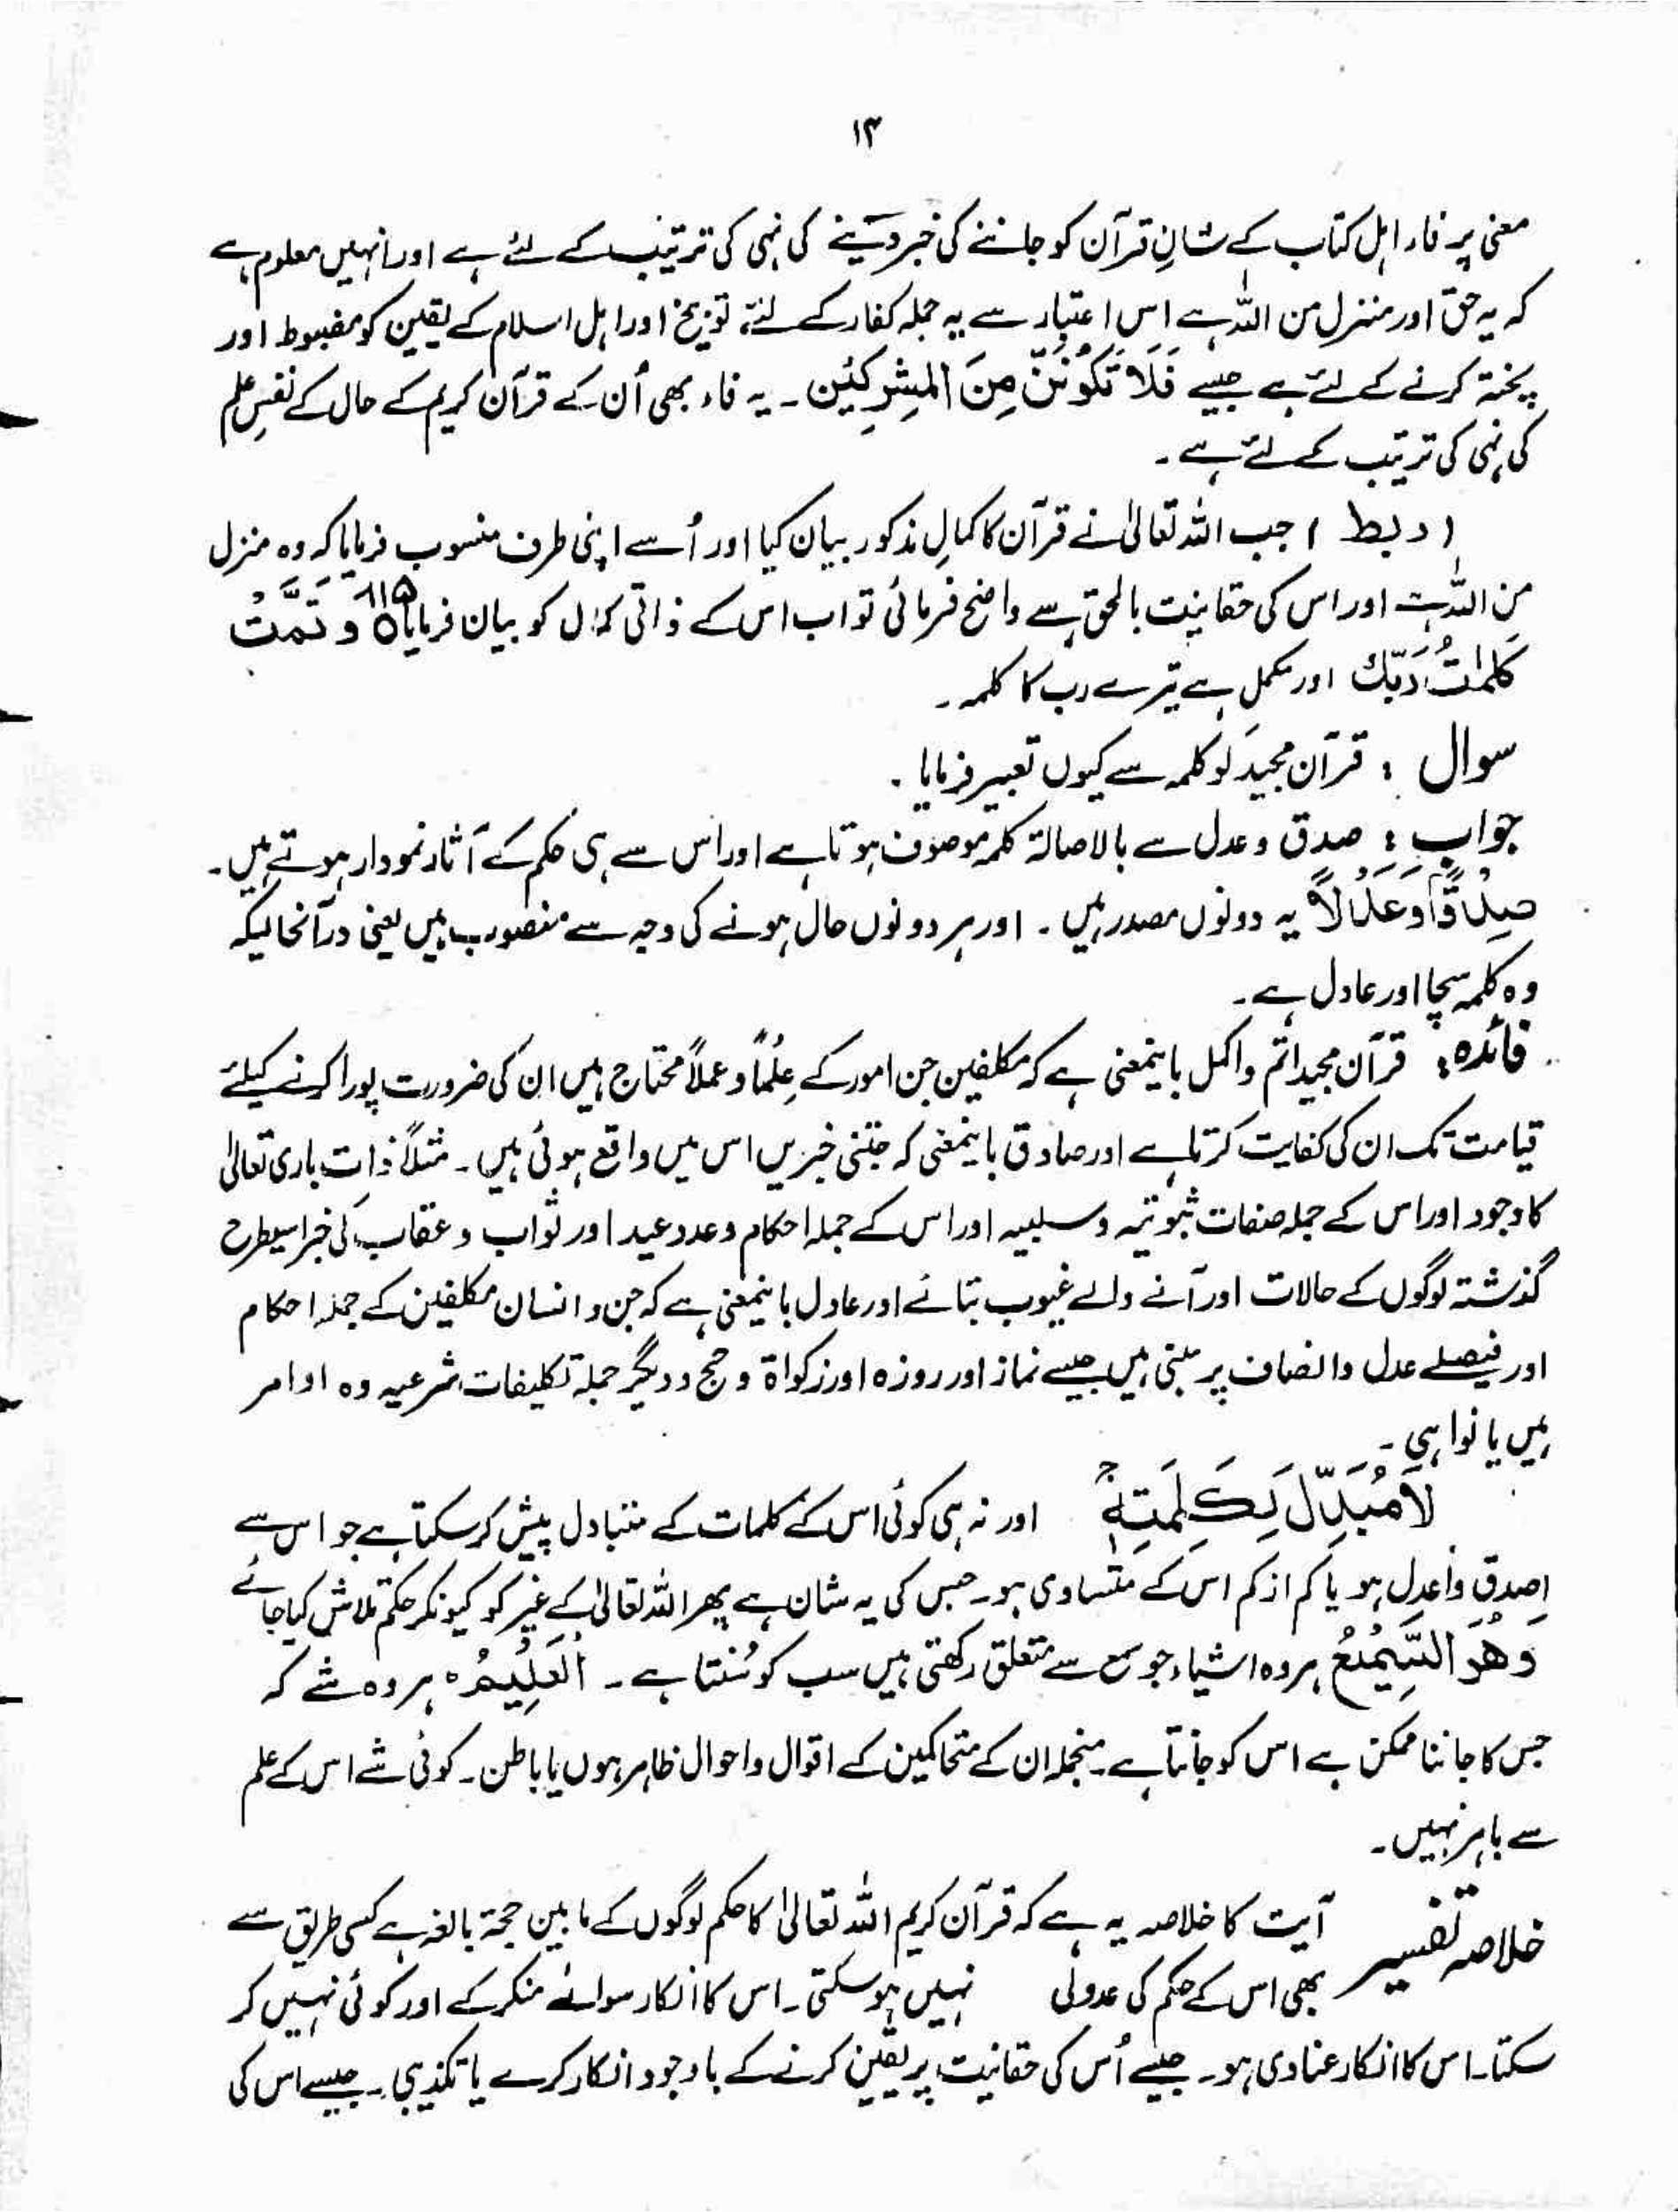 ۱۴
معنی پر فاء اہل کتاب کے شانِ قرآن کو جاننے کی خبر دینے کی نہی کی ترتیب کے لئے ہے اور انہیں معلوم ہے
کہ یہ حق اور منزل من اللہ ہے اس اعتبار سے یہ جملہ کفار کے لئے توبیخ اور اہل اسلام کے یقین کو مضبوط اور
پختہ کرنے کے لئے ہے جیسے فَلَا تَكُوْنَنَّ مِنَ الْمُشْرِكِيْنَ ۔ یہ فاء بھی اُن کے قرآن کریم کے حال کے نفسِ علم
کی نہی کی ترتیب کے لئے ہے ۔
( ربط ) جب اللہ تعالیٰ نے قرآن کا کمالِ مذکور بیان کیا اور اُسے اپنی طرف منسوب فرمایا کہ وہ منزل
من اللہ ہے اور اس کی حقانیت بالحق سے واضح فرمائی تو اب اس کے ذاتی کمال کو بیان فرمایا ۱۱۵ وَ تَمَّتْ
كَلِمٰتُ رَبِّكَ اور مکمل ہے تیرے رب کا کلمہ ۔
سوال : قرآن مجید کو کلمہ سے کیوں تعبیر فرمایا ۔
جواب : صدق و عدل سے بالاصالۃ کلمہ موصوف ہوتا ہے اور اس سے ہی حکم کے آثار نمودار ہوتے ہیں ۔
صِدْقًا وَّعَدْلًا یہ دونوں مصدر ہیں ۔ اور ہر دونوں حال ہونے کی وجہ سے منصوب ہیں یعنی درآنحالیکہ
وہ کلمہ سچا اور عادل ہے ۔
فائدہ : قرآن مجید اتم و اکمل باینمعنی ہے کہ مکلفین جن امور کے عِلْمًا و عملاً محتاج ہیں ان کی ضرورت پورا کرنے کیلئے
قیامت تک ان کی کفایت کرتا ہے اور صادق باینمعنی کہ جتنی خبریں اس میں واقع ہوئی ہیں ۔ مثلاً ذات باری تعالیٰ
کا وجود اور اس کے جملہ صفات ثبوتیہ و سلبیہ اور اس کے جملہ احکام وعدہ وعید اور ثواب و عقاب کی خبر اسیطرح
گذشتہ لوگوں کے حالات اور آنے والے غیوب بتائے اور عادل باینمعنی ہے کہ جن و انسان مکلفین کے جملہ احکام
اور فیصلے عدل و انصاف پر مبنی ہیں جیسے نماز اور روزہ اور زکواۃ و حج و دیگر جملہ تکلیفات شرعیہ وہ اوامر
ہیں یا نواہی ۔
لَا مُبَدِّلَ لِكَلِمٰتِهٖ ۚ اور نہ ہی کوئی اس کے کلمات کے متبادل پیش کر سکتا ہے جو اس سے
اصدق و اعدل ہو یا کم از کم اس کے متساوی ہو ۔ جس کی یہ شان ہے پھر اللہ تعالیٰ کے غیر کو کیونکر حکم تلاش کیا جائے
وَهُوَ السَّمِيْعُ ہر وہ اشیاء جو سمع سے متعلق رکھتی ہیں سب کو سُنتا ہے ۔ الْعَلِيْمُ ہ ہر وہ شے کہ
جس کا جاننا ممکن ہے اس کو جانتا ہے ۔ منجملہ ان کے متحاکمین کے اقوال و احوال ظاہر ہوں یا باطن ۔ کوئی شے اس کے علم
سے باہر نہیں ۔
خلاصہ تفسیر آیت کا خلاصہ یہ ہے کہ قرآن کریم اللہ تعالیٰ کا حکم لوگوں کے مابین حجۃ بالغہ ہے کسی طریق سے
بھی اس کے حکم کی عدولی نہیں ہو سکتی ۔ اس کا انکار سوائے منکر کے اور کوئی نہیں کر
سکتا ۔ اس کا انکار عنادی ہو ۔ جیسے اُس کی حقانیت پر یقین کرنے کے باوجود انکار کرے یا تکذیبی ۔ جیسے اس کی